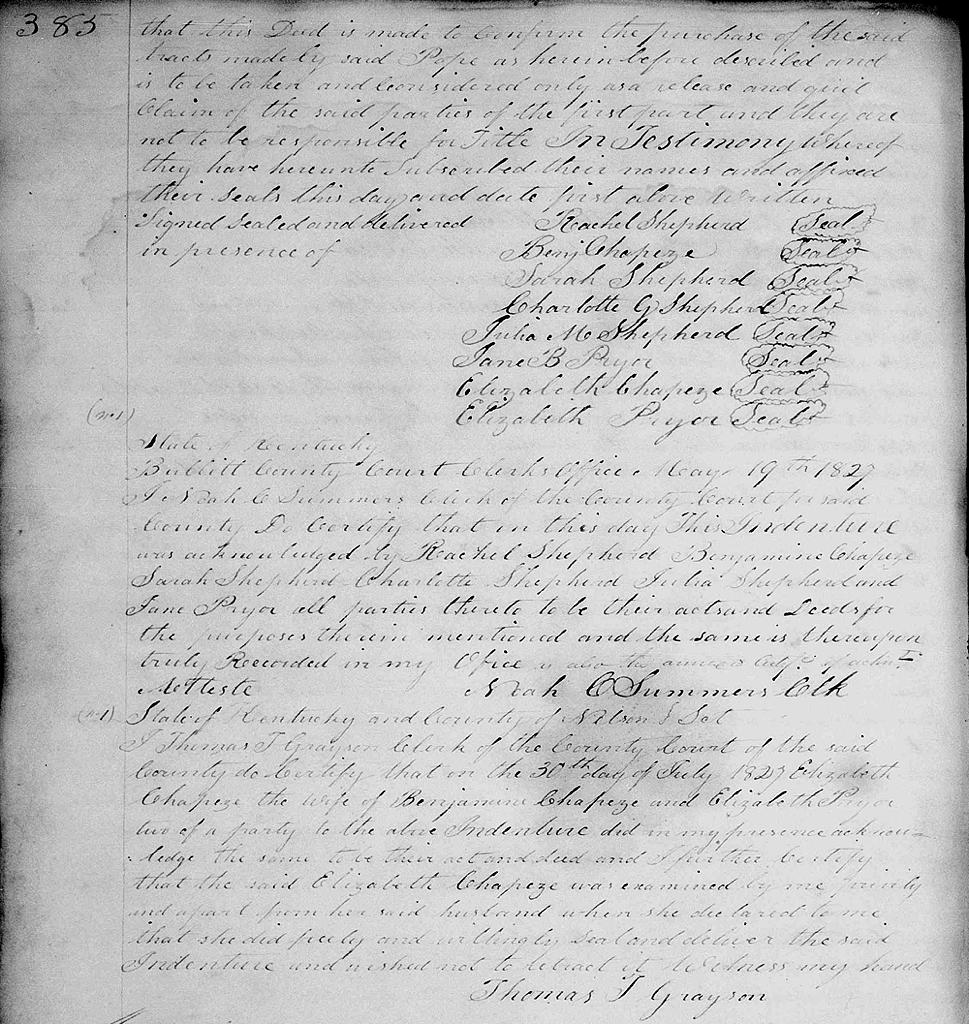 385
that this Deed is made to Confirm the purchase of the said
tracts made by said Pope as herein before described and
is to be taken and Considered only as a release and quit
Claim of the said parties of the first part and they are
not to be responsible for Title In Testimony Whereof
they have hereunto Subscribed their names and affixed
their seals this day and date first above Written
Signed Sealed and delivered Rachel Shepherd (Seal)
in presence of Benj Chapeze (Seal)
Sarah Shepherd (Seal)
Charlotte G Shepherd (Seal)
Julia M Shepherd (Seal)
Jane B Pryor (Seal)
Elizabeth Chapeze (Seal)
Elizabeth Pryor (Seal)
State of Kentucky
Bullitt County Court Clerks Office May 19th 1827
I Noah C Summers Clerk of the County Court for said
County Do Certify that on this day This Indenture
was acknowledged by Rachel Shepherd Benjamine Chapeze
Sarah Shepherd Charlotte Shepherd Julia Shepherd and
Jane Pryor all parties thereto to be their acts and Deeds for
the purposes therein mentioned and the same is thereupon
truly Recorded in my Office as also the annexed
Atteste Noah C Summers Clk
State of Kentucky and County of Nelson Sct
I Thomas T Grayson Clerk of the County Court of the said
County do Certify that on the 30th day of July 1827 Elizabeth
Chapeze the Wife of Benjamine Chapeze and Elizabeth Pryor
two of a party to the above Indenture did in my presence acknow-
ledge the same to be their act and deed and I further Certify
that the said Elizabeth Chapeze was examined by me privily
and apart from her said husband when she declared to me
that she did freely and willingly seal and deliver the said
Indenture and wished not to retract it Witness my hand
Thomas T Grayson